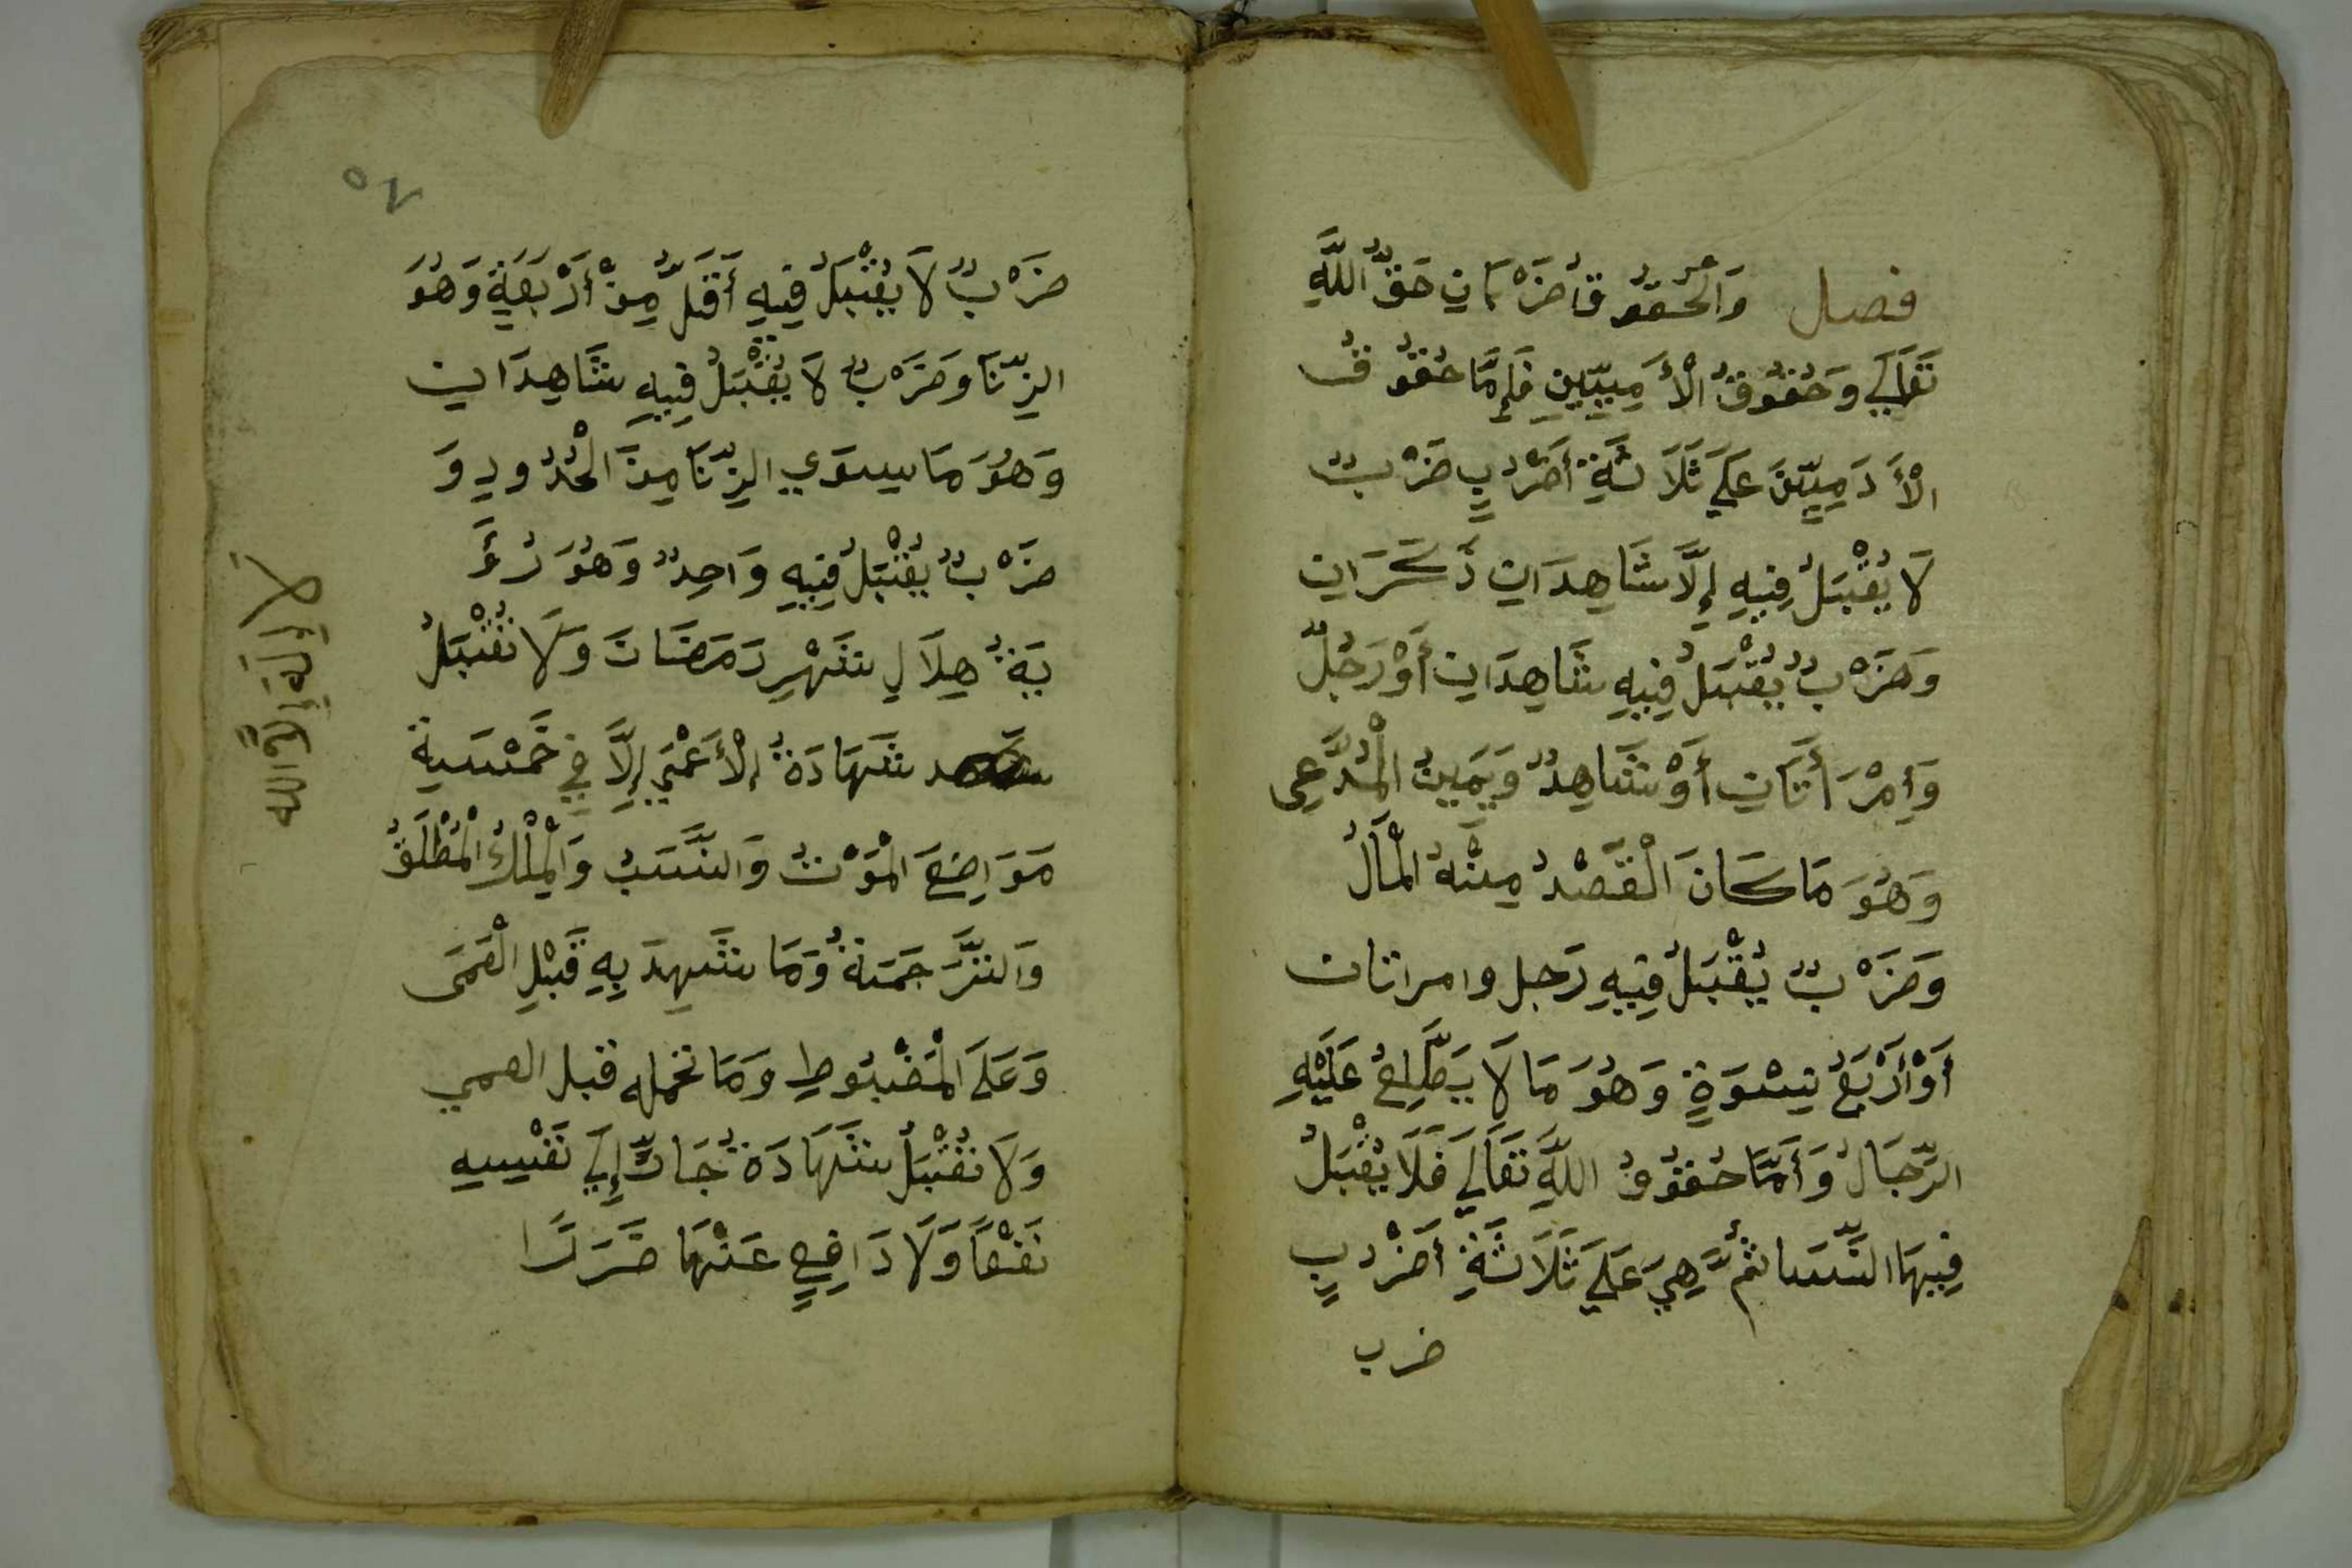 فصل وَالْحُقُوقُ ضَرْبَانِ حَقُّ اللَّهِ
تَعَالَي وَحُقُوقُ الْأَدَمِيِّينِ فَإِمَّا حُقُوقُ
الْأَدَمِيِّينَ عَلَي ثَلَاثَةِ أَضْرُبٍ ضَرْبٌ
لَا يُقْبَلُ فِيهِ إِلَّا شَاهِدَانِ ذَكَرَانِ
وَضَرْبٌ يُقْبَلُ فِيهِ شَاهِدَانِ أَوْ رَجُلٌ
وَإِمْرَأَتَانِ أَوْ شَاهِدٌ وَيَمِينُ الْمُدَّعِى
وَهُوَ مَا كَانَ الْقَصْدُ مِنْهُ الْمَالُ
وَضَرْبٌ يُقْبَلُ فِيهِ رَجل وامراتان
أَوْ أَرْبَعُ نِسْوَةٍ وَهُوَ مَا لَا يَطَّلِعُ عَلَيْهِ
الرِّجَالُ وَأَمَّا حُقُوقُ اللَّهِ تَعَالَي فَلَا يُقْبَلُ
فِيهَا النِّسَا ثُمَّ هِيَ عَلَي ثَلَاثَةِ أَضْرُبٍ
ضرب
٥٧
ضَرْبٌ لَا يُقْبَلُ فِيهِ أَقَلَّ مِنْ أَرْبَعَةٍ وَهُوَ
الزِّنَا وَضَرْبٌ لَا يُقْبَلُ فِيهِ شَاهِدَانِ
وَهُوَ مَا سِوَي الزِّنَا مِنَ الْحُدُودِ وَ
ضَرْبٌ يُقْبَلُ فِيهِ وَاحِدٌ وَهُوَ رُءْ
يَةُ هِلَالِ شَهْرِ رَمَضَانَ وَلَا تُقْبَلُ
شَهَادَةُ الْأَعْمَي إِلَّا فِي خَمْسَةِ
مَوَاضِعَ الْمَوْتُ وَالنَّسَبُ وَالْمِلْكُ الْمُطْلَقُ
وَالتَّرْجَمَةُ وَمَا شَهِدَ بِهِ قَبْلِ الْعَمَى
وَعَلَي الْمَضْبُوطِ وَمَا تحمله قبل العمي
وَلَا تُقْبَلُ شَهَادَةُ جَارٍّ إِلَي نَفْسِهِ
نَفْعًا وَلَا دَافِعٍ عَنْهَا ضَرَرًا
لَا إِلَهَ إِلَّا الله